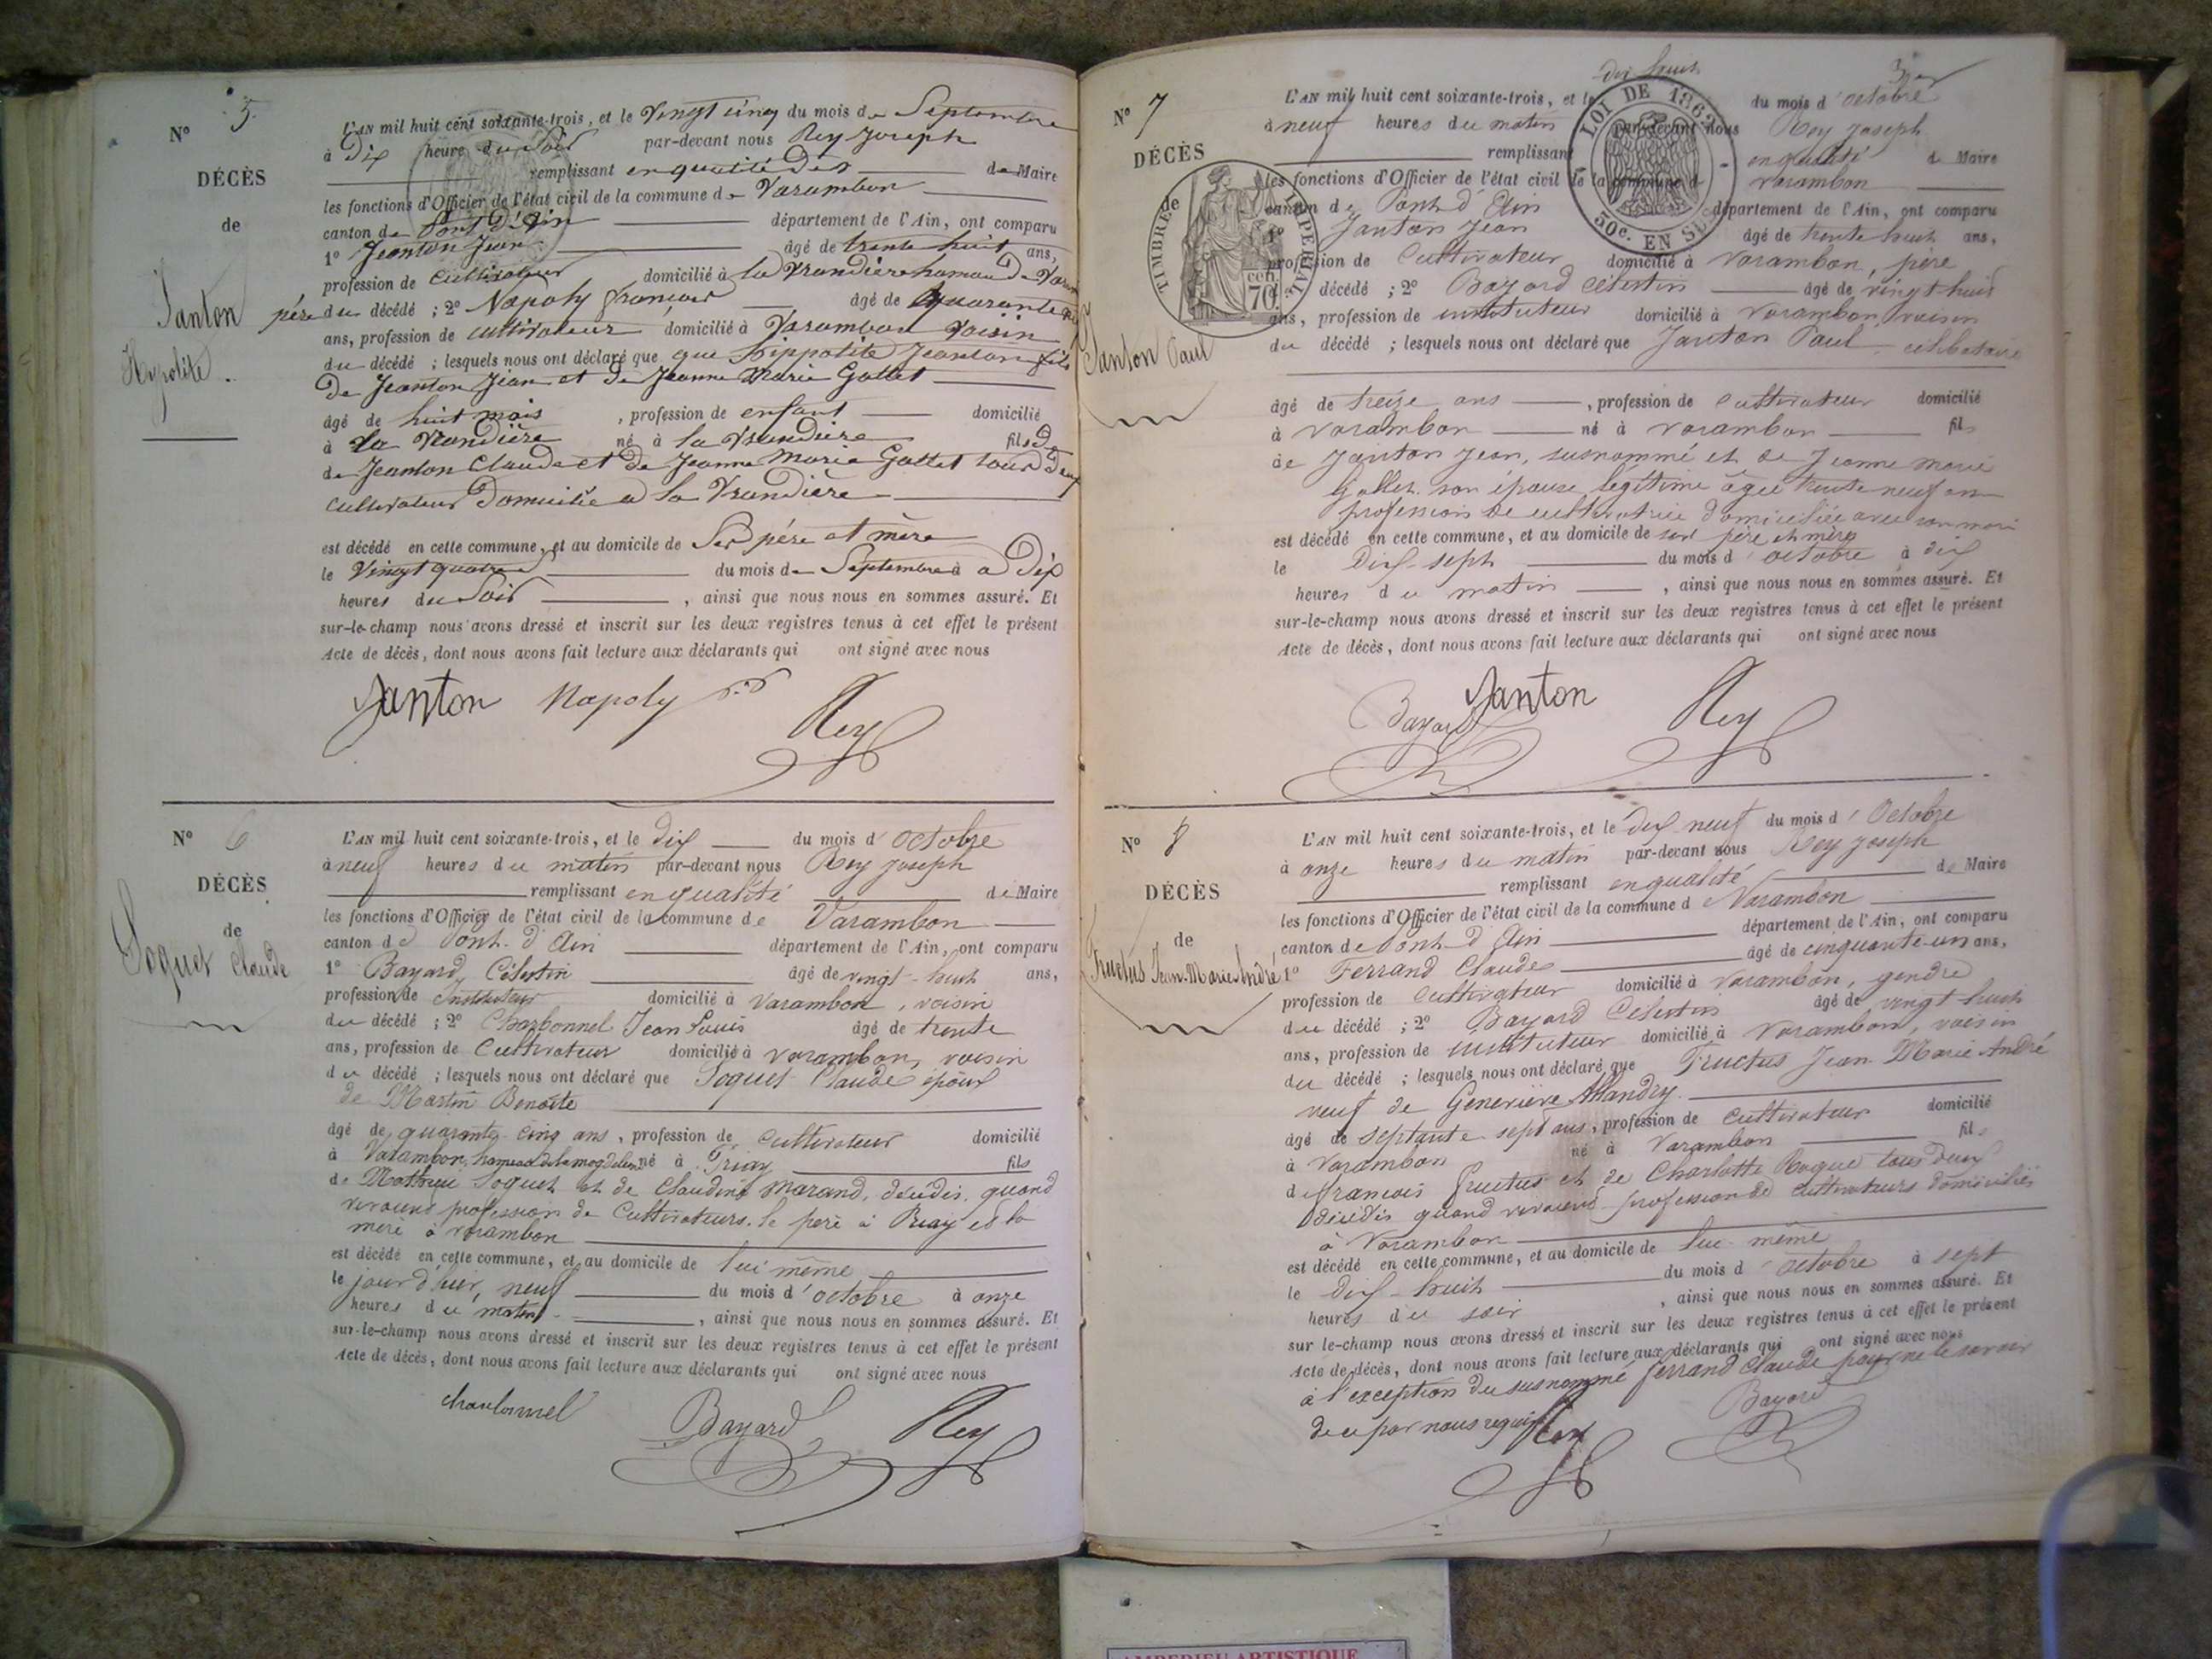 N° 5.
DÉCÈS
de
Janton
Hypolite.
L'AN mil huit cent soixante-trois, et le Vingt cinq du mois de Septembre
à Dix heure du Soir par-devant nous Rey Joseph
remplissant en qualité de Maire
les fonctions d'Officier de l'état civil de la commune de Varambon
canton de Pont d'Ain département de l'Ain, ont comparu
1° Jeanton Jean âgé de trente huit ans,
profession de cultivateur domicilié à la Vrandière hameau de
père du décédé ; 2° Napoly françois âgé de quarante
ans, profession de cultivateur domicilié à Varambon voisin
du décédé ; lesquels nous ont déclaré que que hippolite Jeanton fils
de Jeanton Jean et de Jeanne Marie Gallet
âgé de huit mois, profession de enfant domicilié
à la Vrandière né à la Vrandière fils de
de Jeanton Claude et de Jeanne Marie Gallet tous deux
cultivateur Domicilié a la Vrandière
est décédé en cette commune, et au domicile de Ses père et mère
le Vingt quatre du mois de Septembre à a Dix
heures du Soir, ainsi que nous nous en sommes assuré. Et
sur-le-champ nous avons dressé et inscrit sur les deux registres tenus à cet effet le présent
Acte de décès, dont nous avons fait lecture aux déclarants qui ont signé avec nous
Janton Napoly Rey
N° 6
DÉCÈS
de
Soquet Claude
L'AN mil huit cent soixante-trois, et le dix du mois d'octobre
à neuf heures du matin par-devant nous Rey joseph
remplissant en qualité de Maire
les fonctions d'Officier de l'état civil de la commune de Varambon
canton de Pont-d'Ain département de l'Ain, ont comparu
1° Bayard, Célestin âgé de vingt-huit ans,
profession de instituteur domicilié à varambon, voisin
du décédé ; 2° Charbonnel Jean Louis âgé de trente
ans, profession de Cultivateur domicilié à varambon, voisin
du décédé ; lesquels nous ont déclaré que Soquet Claude époux
de Martin Benoîte
âgé de quarante-cinq ans, profession de cultivateur domicilié
à Varambon, hameau de la magdeleine né à Priay fils
de Mathieu Soquet et de Claudine Marand, décédés, quand
vivaient profession de Cultivateurs. le père à Priay et la
mère à varambon
est décédé en cette commune, et au domicile de lui même
le jour d'hier, neuf du mois d'octobre à onze
heures du matin, ainsi que nous nous en sommes assuré. Et
sur-le-champ nous avons dressé et inscrit sur les deux registres tenus à cet effet le présent
Acte de décès, dont nous avons fait lecture aux déclarants qui ont signé avec nous
charbonnel Bayard Rey
N° 7
DÉCÈS
de
Janton Paul
TIMBRE IMPERIAL
70 c.
LOI DE 1862
50c. EN SUS
dix huit
L'AN mil huit cent soixante-trois, et le du mois d'octobre
à neuf heures du matin par-devant nous Rey Joseph
remplissant en qualité d Maire
les fonctions d'Officier de l'état civil de la commune d varambon
canton de Pont d'Ain département de l'Ain, ont comparu
1° Janton Jean âgé de trente huit ans,
profession de Cultivateur domicilié à varambon, père
du décédé ; 2° Bayard célestin âgé de vingt huit
ans, profession de instituteur domicilié à varambon, voisin
du décédé ; lesquels nous ont déclaré que Janton Paul, célibataire
âgé de treize ans, profession de cultivateur domicilié
à varambon né à varambon fils
de Janton Jean, susnommé et de Jeanne marie
Gallet son épouse légitime âgée trente neuf ans
profession de cultivatrice domiciliée avec son mari
est décédé en cette commune, et au domicile de ses père et mère
le Dix-sept du mois d'octobre à dix
heures du matin, ainsi que nous nous en sommes assuré. Et
sur-le-champ nous avons dressé et inscrit sur les deux registres tenus à cet effet le présent
Acte de décès, dont nous avons fait lecture aux déclarants qui ont signé avec nous
Bayard Janton Rey
N° 8
DÉCÈS
de
Fructus Jean-Marie André
L'AN mil huit cent soixante-trois, et le dix neuf du mois d'Octobre
à onze heures du matin par-devant nous Rey joseph
remplissant en qualité de Maire
les fonctions d'Officier de l'état civil de la commune d Varambon
canton de Pont-d'Ain département de l'Ain, ont comparu
1° Ferrand Claude âgé de cinquante-un ans,
profession de cultivateur domicilié à varambon, gendre
du décédé ; 2° Bayard Célestin âgé de vingt huit
ans, profession de instituteur domicilié à varambon, voisin
du décédé ; lesquels nous ont déclaré que Fructus Jean-Marie André
veuf de Geneviève
âgé de septante sept ans, profession de cultivateur domicilié
à varambon né à Varambon fils
d françois fructus et de Charlotte Roque tous deux
décédés quand vivaient profession de cultivateurs domiciliés
à Varambon
est décédé en cette commune, et au domicile de lui-même
le dix-huit du mois d'octobre à sept
heures du soir, ainsi que nous nous en sommes assuré. Et
sur le-champ nous avons dressé et inscrit sur les deux registres tenus à cet effet le présent
Acte de décès, dont nous avons fait lecture aux déclarants qui ont signé avec nous
à l'exception du susnommé ferrand claude pour ne le savoir
de ce par nous requis Rey Bayard
AMBERIEU ARTISTIQUE